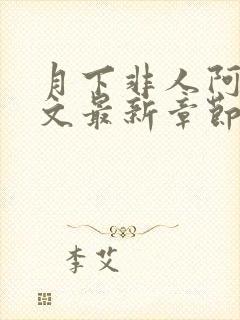 月下非人阿
文最新章節
李艾